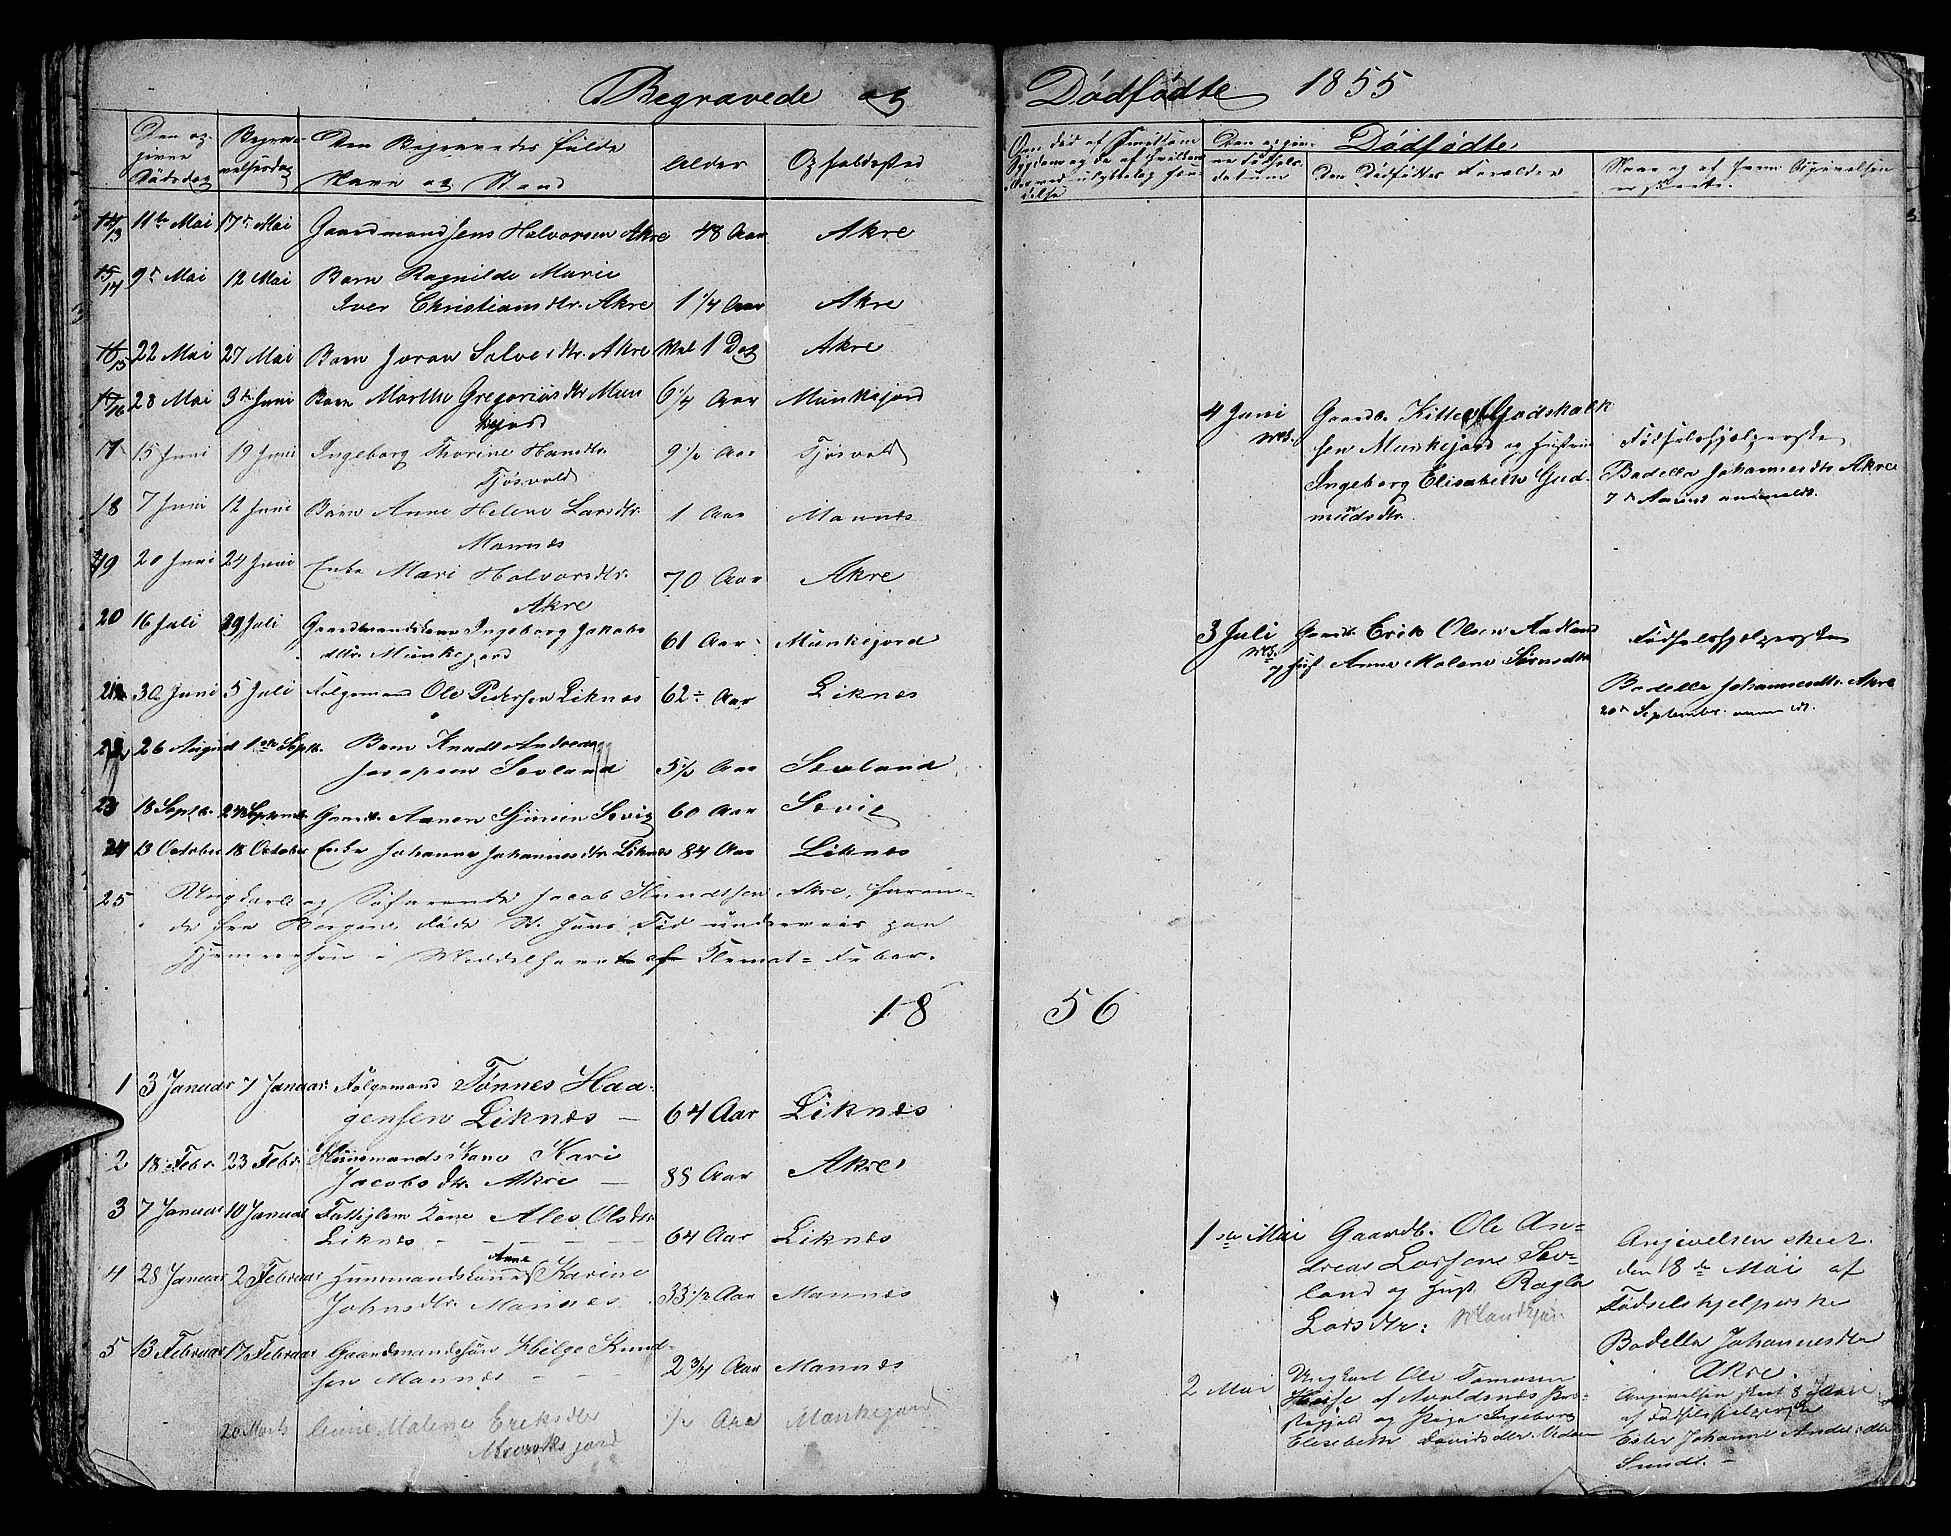 Begravede og Dødfødte 1855
Den opgivne Dødsdag
Begravelsesdag
Den Begravedes fulde Navn og Stand
Alder
Opholdssted
Dødfødte
Den Dødfødtes Forældre
14/13 11te Mai 17de Mai Gaardmand Jens Halvorsen Akre 48 Aar Akre
15/14 9de Mai 12 Mai Barn Ragnilde Marie
Iver Christiansdtr. Akre 1 1/4 Aar Akre
16/15 22 Mai 27 Mai Barn Joran Salvesdtr. Akre 1 Dag Akre
17/16 28 Mai 3de Juni Barn Marthe Gregoriusdtr Mun
kejord 6 1/4 Aar Munkejord
17 15 Juni 19 Juni Ingeborg Thorine Hansdtr.
Tjøsvold 9 1/2 Aar Tjøsvold
18 7 Juni 12 Juni Barn Anne Helene Larsdtr.
Mannes 1 Aar Mannes
19 20 Juni 24 Juni Enke Mari Halvorsdtr.
Akre 70 Aar Akre
20 16 Juli 19 Juli Gaardmandskone Ingeborg Jakobs
dtr. Munkejord 61 Aar Munkejord
21 30 Juni 5 Juli Folgemand Ole Pedersen Liknes 62 Aar Liknes
22 26 August 1ste Sept. Barn Knudt Andreas
Josepsen Sevland 5 1/2 Aar Sevland
23 18 Septb. Gaardb. Sevig 60 Aar Sevig
24 13 October 18 October Enke Johanne Johannesdtr. Liknes 84 Aar Liknes
25 Ungkarl og Søfarende Jacob Knudtsen Akre, faren-
de fra Bergen, døde St. Juns Tid underveis paa
Hjemreisen i Middelhavet af Klemat-Feber.
4 Juni Gaardb. Kittel Godskalk
sen Munkejord og Hustrue
Ingeborg Elisabeth Gud-
mundsdtr.
Fødselshjelperske
Bodella Johannesdtr Akre
7de August anmeldt.
3 Juli Gaardb. Erik Olsen Aadland
og Hust Anne Malene Sørensdtr
Fødselshjelperske
Bodella Johannesdtr. Akre
20de September anmeldt.
1856
1 3 Januar 7 Januar Folgemand Tønnes Haa-
gensen Liknes 64 Aar Liknes
2 18 Febr. 23 Febr. Huusmands Kone Kari
Jacobsdtr. Akre 88 Aar Akre
3 7 Januar 10 Januar Fattiglem Kone Ales Olsdtr.
Liknes 64 Aar Liknes
4 28 Januar 2 Februar Huusmandskone Anne Karine
Johnsdtr. Mannes 33 1/2 Aar Mannes
5 13 Februar 17 Februar Gaardmandssøn Helge Knud-
sen Mannes 2 3/4 Aar Mannes
20 Marts Anne Malene Eriksdtr
Munkejord 1/2 Aar Munkejord
1ste Mai Gaardb. Ole An-
dreas Larsen Sev-
land og Hust. Ragla
Larsdtr:
Angivelsen skeet
den 18de Mai af
Fødselshjelperske
Bodella Johannesdtr
Akre.
2 Mai Ungkarl Ole Tomasen
af Avaldsnes Præ-
stegjeld og Pige Ingeborg
Elisebeth Davidsdtr. Vedøen
Angivelsen skeet 8 Juni
af Fødselshjelperske
Ester Johanne Andersdtr
Sundt.